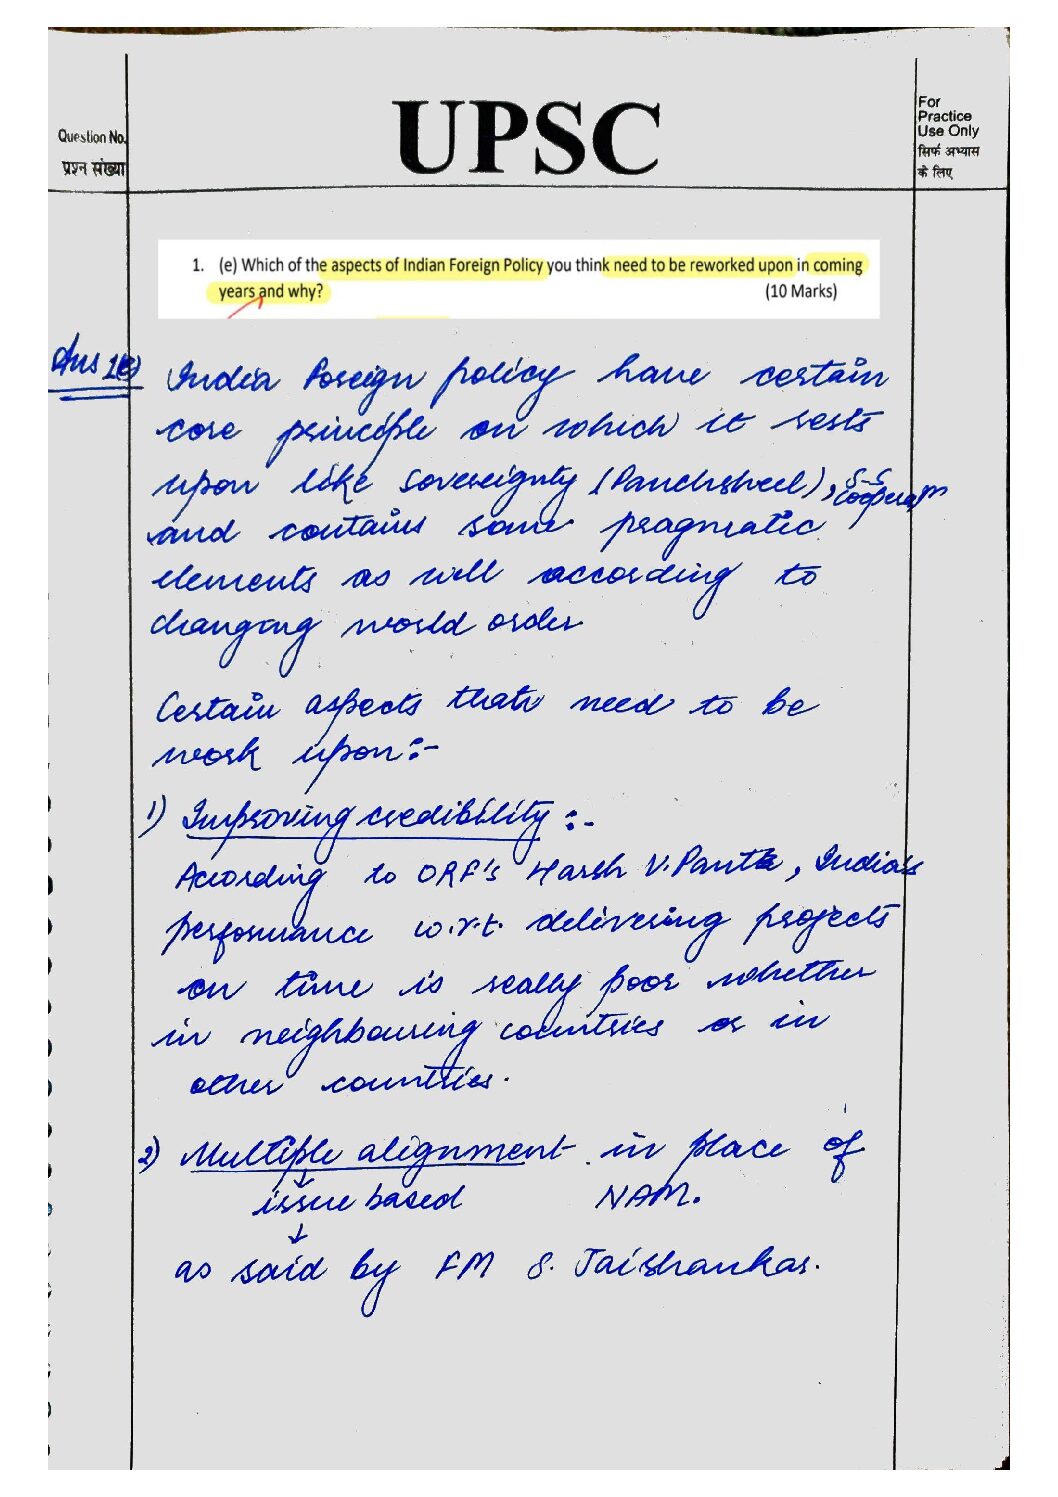 Question No.
प्रश्न संख्या
UPSC
For
Practice
Use Only
सिर्फ अभ्यास
के लिए
1. (e) Which of the aspects of Indian Foreign Policy you think need to be reworked upon in coming
years and why? (10 Marks)
Ans 1(e) India Foreign policy have certain
core principle on which it rests
upon like Sovereignty (Panchsheel), S-S cooperam
and contains some pragmatic
elements as well according to
changing world order
Certain aspects that need to be
work upon:-
1) Improving credibility :-
According to ORF's Harsh V. Pant, India's
performance w.r.t. delivering projects
on time is really poor whether
in neighbouring countries or in
other countries.
2) Multiple alignment in place of
issue based NAM.
as said by FM S. Jaishankar.